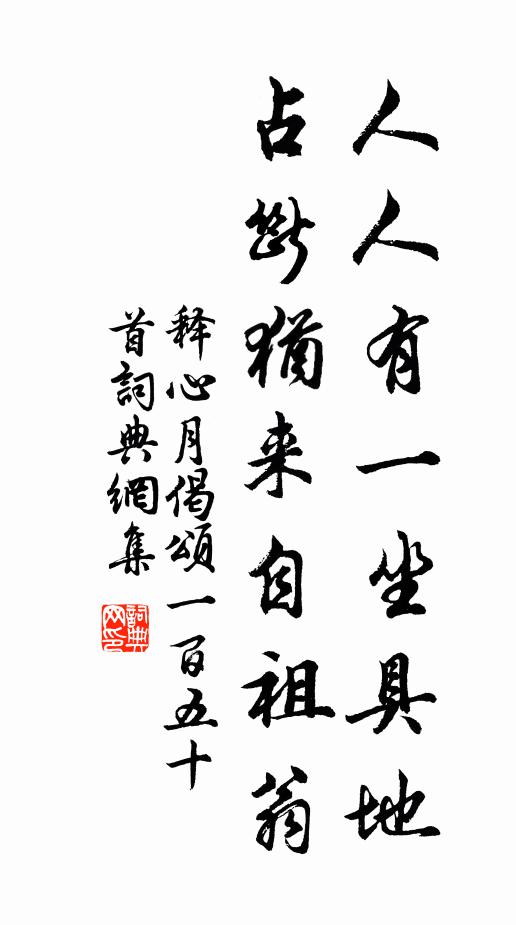 人人有一坐具地
占斷猶来自祖翁
释心月偈頌一百五十
首詞典網集
詞典网印